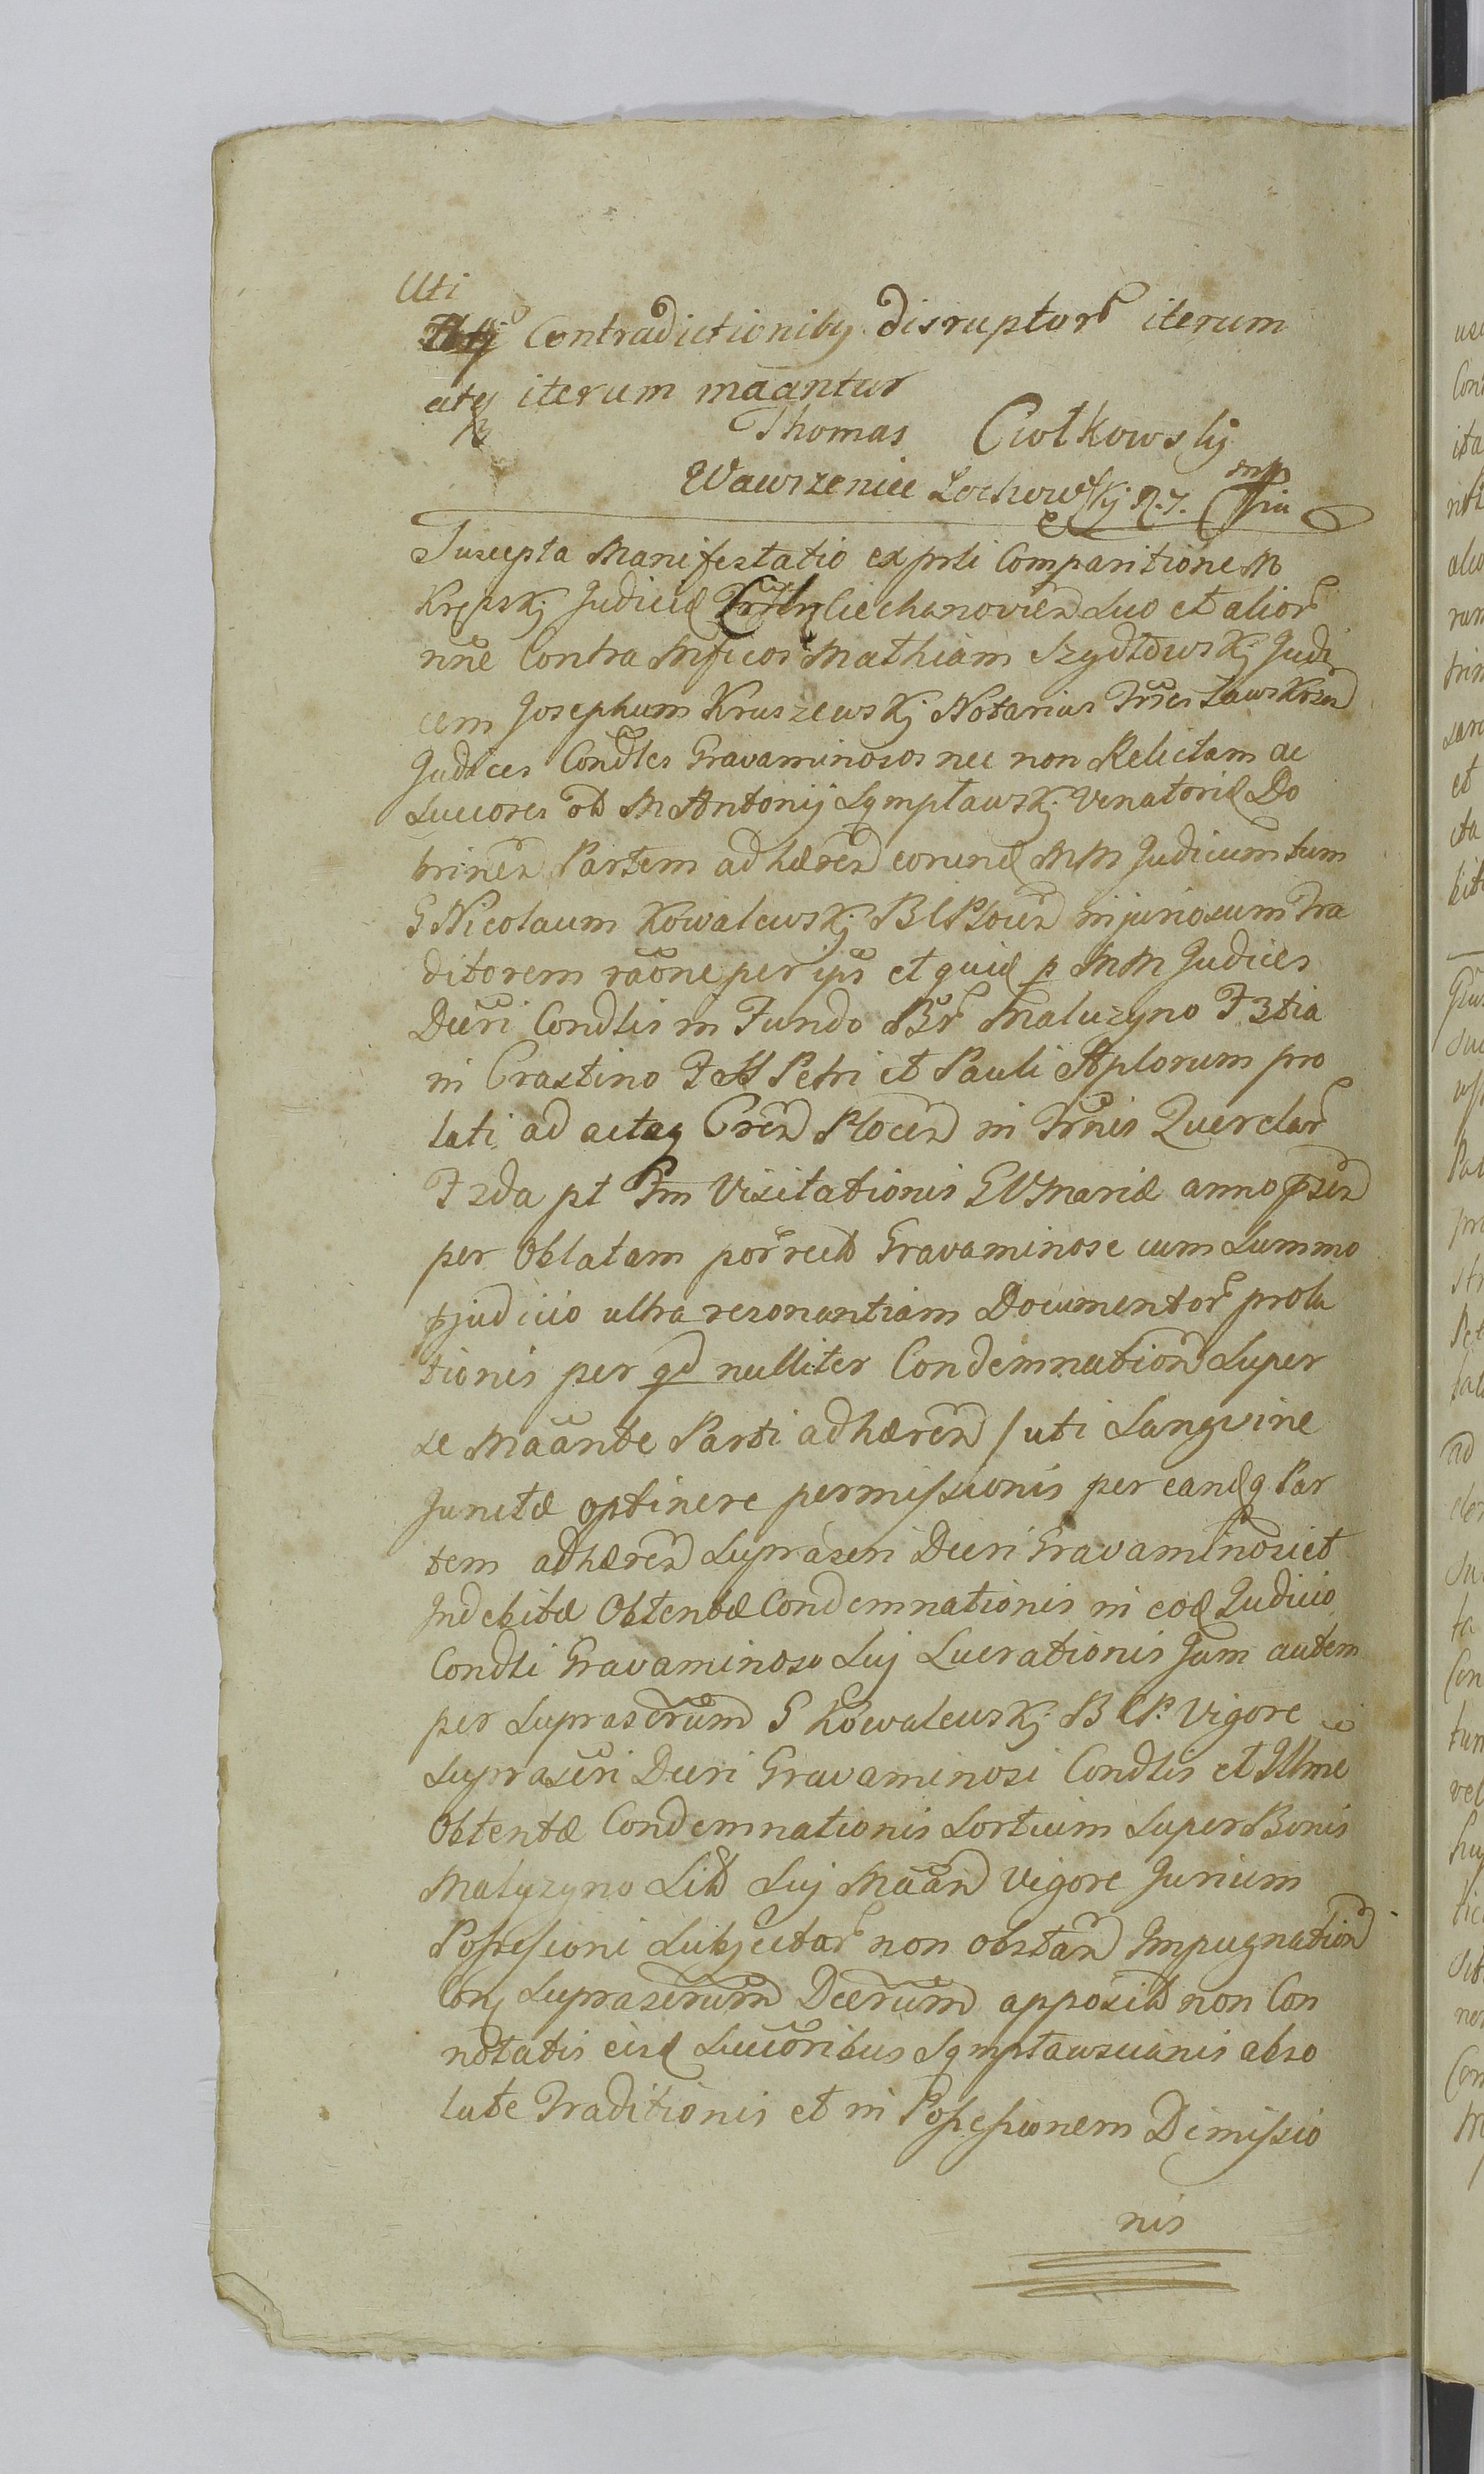 Uti
Contradictionibg disruptor iterum
atq iterum maantur
Thomas Ciołkowsky
Wawrzeniec Lochowskj mp
Suscepta Manifestatio ex prli Comparitione M
Krępskj Judicis Ciechanovien Suo et alior
nne Contra Mficos Mathiam Szydłowskj Judi
cem Josephum Kruszewskj Notarius Trres Zawskrzen
Judices Condles Gravaminosos nec non Relictam ac
Succores ol M Antonij Sgmptawskj Venatoris Do
brinen Partem adhæren eorund MM Judicum tum
G Nicolaum Kowalewskj B C Plocen injuriosum Tra
ditorem raone per ips et quid p MM Judices
Dcri Condlis in Fundo Br Maluzyno F 3tia
in Crastino F SS Petri et Pauli Aplorum pro
lati ad actaq Cren Plocen in Trnis Querelar
F 2da pt Fm Visitationis G V Mariæ anno psen
per Oblatam porrect Gravaminose cum Summo
pjudicio ultra resonantiam Documentor prola
tionis per qd nulliter Condemnation Super
se Maante Parti adhæren / uti Sangvine
Junctæ optinere permissionis per eandq Par
tem adhæren Suprascri Dcri Gravaminosi et
Indebitæ Obtentæ Condemnationis in eod Judicio
Condli Gravaminoso Suj Lucrationis Jam autem
per suprascrum G Kowalewskj B C P. Vigore
Suprascri Dcri Gravaminosi Condlis et Illme
Obtentæ Condemnationis Sortium Super Bonis
Maluzyno Sit Suj Maan Vigore Jurium
Possessioni Subjectar non obstan Impugnation
Con Suprascrum Dcrum apposit non Con
notatis eisd Succoribus Sgmptawscianis abso
lute Traditionis et in Possessionem Dimissio
nis